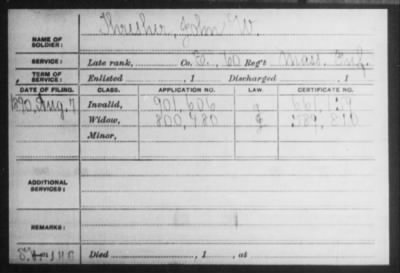 NAME OF SOLDIER: Thresher, John W.
SERVICE: Late rank, Co. E, 60 Reg't Mass. Inf.
TERM OF SERVICE: Enlisted , 1 Discharged , 1
DATE OF FILING. CLASS. APPLICATION NO. LAW. CERTIFICATE NO.
1890, Aug. 7 Invalid, 901,606 J
Widow, 800,980 J 589,810
Minor,
ADDITIONAL SERVICES:
REMARKS:
Died , 1 , at